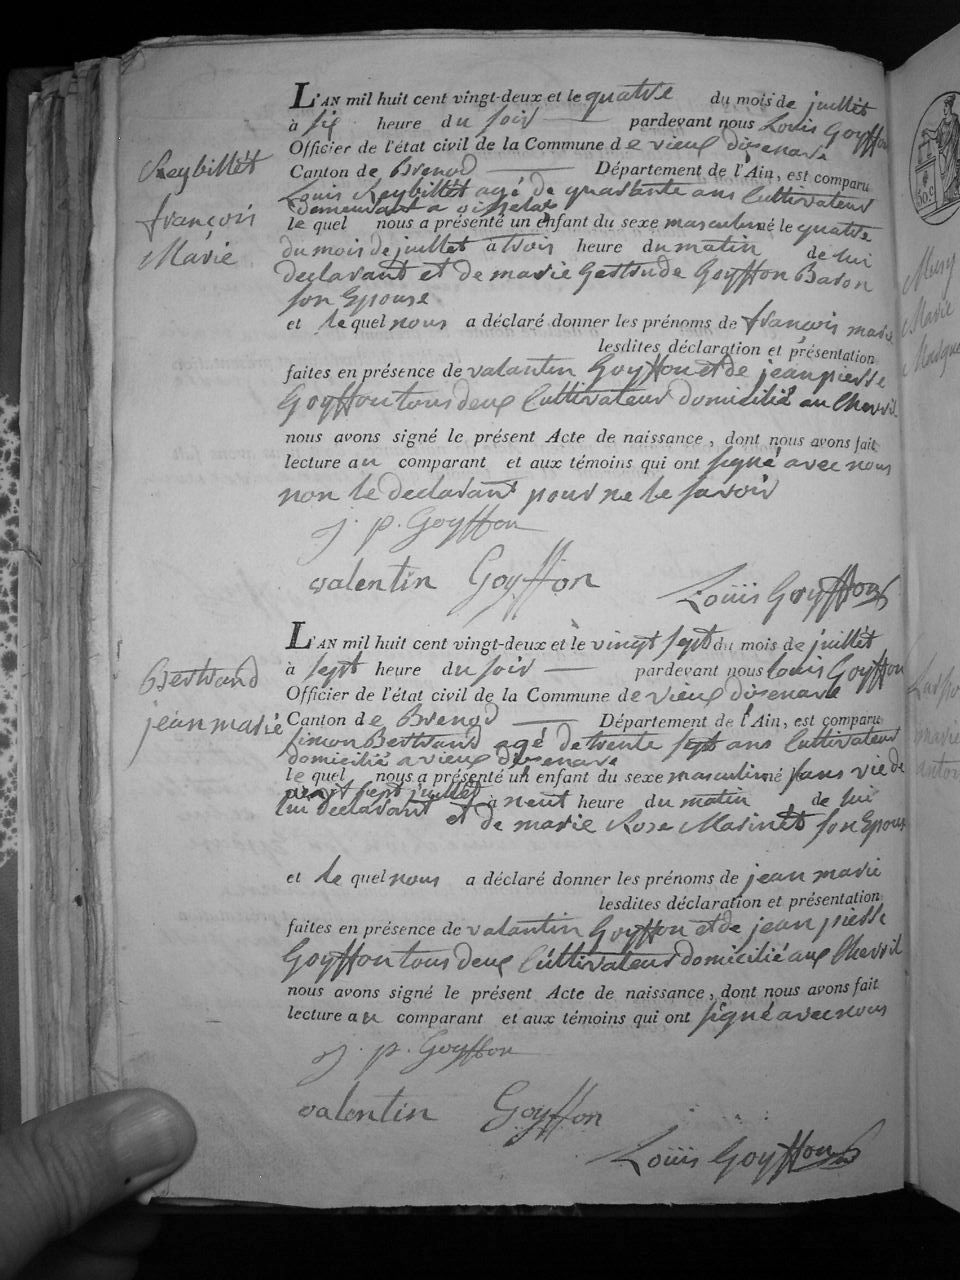 L'AN mil huit cent vingt-deux et le quatre du mois de juillet
à six heure du soir pardevant nous Louis Goyffon
Officier de l'état civil de la Commune de vieux disenave
Canton de Brenod Département de l'Ain, est comparu
Louis Reybillet agé de quarante ans Cultivateur
demeurant a
le quel nous a présenté un enfant du sexe masculin né le quatre
du mois de juillet à trois heure du matin de lui
declarant et de marie Gertrude Goyffon Baron
son Epouse
et le quel nous a déclaré donner les prénoms de françois marie
lesdites déclaration et présentation
faites en présence de valantin Goyffon et de jean pierre
Goyffon tous deux Cultivateur domicilié au Chevril
nous avons signé le présent Acte de naissance, dont nous avons fait
lecture au comparant et aux témoins qui ont signé avec nous
non le declarant pour ne le savoir
Reybillet
françois
Marie
j. p. Goyffon
valentin Goyffon
Louis Goyffon
L'AN mil huit cent vingt-deux et le vingt sept du mois de juillet
à sept heure du soir pardevant nous Louis Goyffon
Officier de l'état civil de la Commune de vieux disenave
Canton de Brenod Département de l'Ain, est comparu
Simon Bertrand agé de trente sept ans Cultivateur
domicilié a vieux disenave
le quel nous a présenté un enfant du sexe masculin né sans vie de
vingt sept juillet à neut heure du matin de lui
lui declarant et de marie Rose Marinet son Epouse
et le quel nous a déclaré donner les prénoms de jean marie
lesdites déclaration et présentation
faites en présence de valantin Goyffon et de jean pierre
Goyffon tous deux Cultivateur domicilié aux Chevril
nous avons signé le présent Acte de naissance, dont nous avons fait
lecture au comparant et aux témoins qui ont signé avec nous
Bertrand
jean marie
j. p. Goyffon
valentin Goyffon
Louis Goyffon